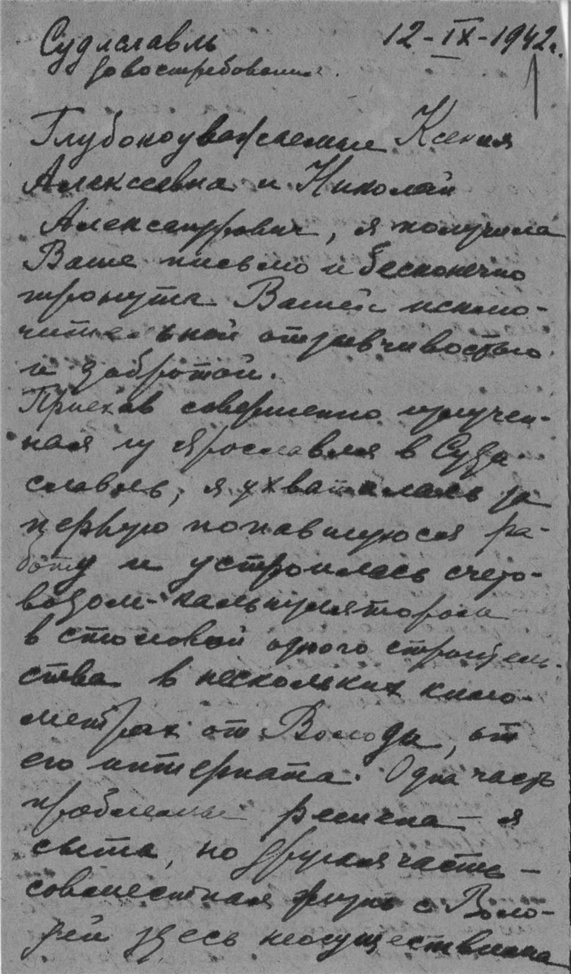 Судиславль 12-IX-1942г.
до востребования.
Глубокоуважаемые Ксения
Алексеевна и Николай
Александрович, я получила
Ваше письмо и бесконечно
тронута Вашей исклю-
чительной отзывчивостью
и добротой.
Приехав совершенно измучен-
ная из Ярославля в Суди-
славль, я ухватилась за
первую попавшуюся ра-
боту и устроилась счето-
водом-калькулятором
в столовой одного строитель-
ства в нескольких кило-
метрах от Володи, от
его интерната. Одна часть
проблемы решена – я
сыта, но другая часть –
совместная жизнь с Воло-
дей здесь неосуществима